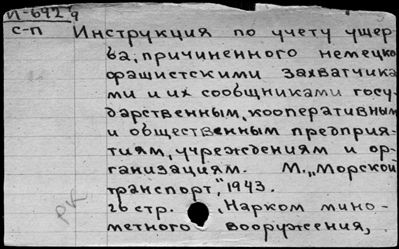 И-642
9
с-п Инструкция по учету ущер
ба, причиненного немецко
фашистскими захватчика
ми и их сообщниками госу-
дарственным, кооперативным
и общественным предприя-
тиям, учреждениям и ор-
ганизациям. М., "Морской
транспорт", 1943.
26 стр. , Нарком мино-
метного вооружения,
РК